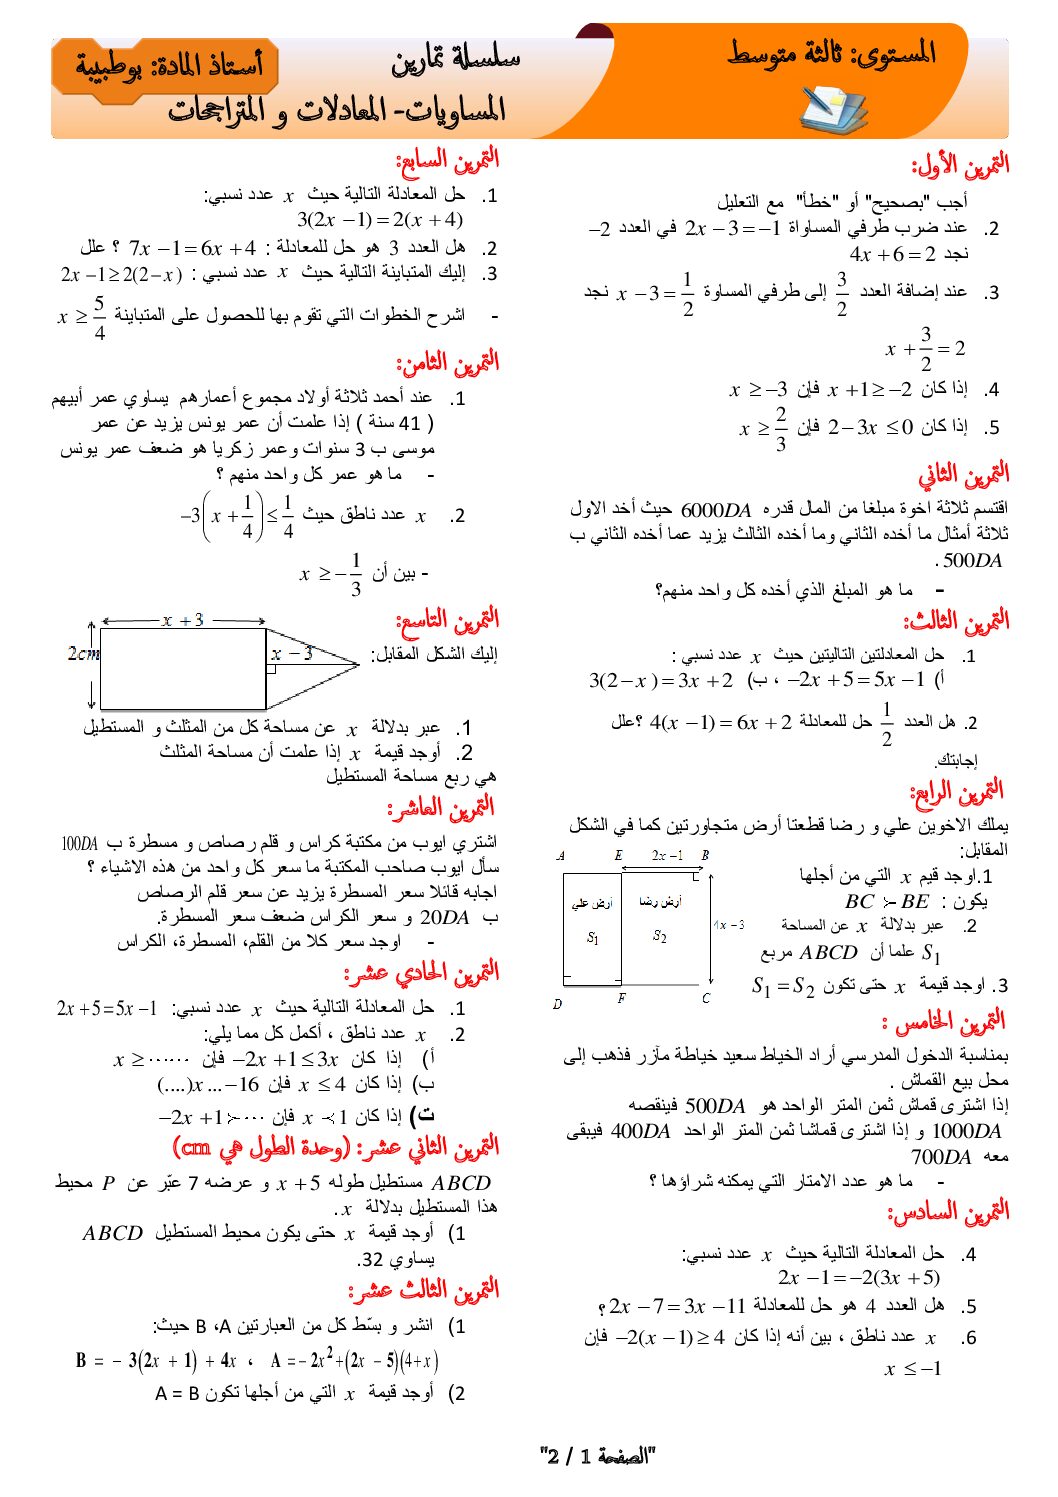 المستوى: ثالثة متوسط
سلسلة تمارين
المساويات- المعادلات و المتراجحات
أستاذ المادة: بوطبيبة
التمرين الأول:
أجب "بصحيح" أو "خطأ" مع التعليل
2. عند ضرب طرفي المساواة 2x − 3 = −1 في العدد −2
نجد 4x + 6 = 2
3. عند إضافة العدد 3/2 إلى طرفي المساوة x − 3 = 1/2 نجد
x + 3/2 = 2
4. إذا كان x + 1 ≥ −2 فإن x ≥ −3
5. إذا كان 2 − 3x ≤ 0 فإن x ≥ 2/3
التمرين الثاني
اقتسم ثلاثة اخوة مبلغا من المال قدره 6000DA حيث أخد الاول
ثلاثة أمثال ما أخده الثاني وما أخده الثالث يزيد عما أخده الثاني ب
500DA .
- ما هو المبلغ الذي أخده كل واحد منهم؟
التمرين الثالث:
1. حل المعادلتين التاليتين حيث x عدد نسبي :
أ) −2x + 5 = 5x − 1 ، ب) 3(2 − x) = 3x + 2
2. هل العدد 1/2 حل للمعادلة 4(x − 1) = 6x + 2 ؟علل
إجابتك.
التمرين الرابع:
يملك الاخوين علي و رضا قطعتا أرض متجاورتين كما في الشكل
المقابل:
1.اوجد قيم x التي من أجلها
يكون : BC ≻ BE
2. عبر بدلالة x عن المساحة
S1 علما أن ABCD مربع
3. اوجد قيمة x حتى تكون S1 = S2
A E 2x−1 B
أرض علي
أرض رضا
S1 S2
4x−3
D F C
التمرين الخامس :
بمناسبة الدخول المدرسي أراد الخياط سعيد خياطة مآزر فذهب إلى
محل بيع القماش .
إذا اشترى قماش ثمن المتر الواحد هو 500DA فينقصه
1000DA و إذا اشترى قماشا ثمن المتر الواحد 400DA فيبقى
معه 700DA
- ما هو عدد الامتار التي يمكنه شراؤها ؟
التمرين السادس:
4. حل المعادلة التالية حيث x عدد نسبي:
2x − 1 = −2(3x + 5)
5. هل العدد 4 هو حل للمعادلة 2x − 7 = 3x − 11 ؟
6. x عدد ناطق ، بين أنه إذا كان −2(x − 1) ≥ 4 فإن
x ≤ −1
التمرين السابع:
1. حل المعادلة التالية حيث x عدد نسبي:
3(2x − 1) = 2(x + 4)
2. هل العدد 3 هو حل للمعادلة : 7x − 1 = 6x + 4 ؟ علل
3. إليك المتباينة التالية حيث x عدد نسبي : 2x − 1 ≥ 2(2 − x)
- اشرح الخطوات التي تقوم بها للحصول على المتباينة x ≥ 5/4
التمرين الثامن:
1. عند أحمد ثلاثة أولاد مجموع أعمارهم يساوي عمر أبيهم
( 41 سنة ) إذا علمت أن عمر يونس يزيد عن عمر
موسى ب 3 سنوات وعمر زكريا هو ضعف عمر يونس
- ما هو عمر كل واحد منهم ؟
2. x عدد ناطق حيث −3(x + 1/4) ≤ 1/4
- بين أن x ≥ −1/3
التمرين التاسع:
إليك الشكل المقابل:
x + 3
2cm
x − 3
1. عبر بدلالة x عن مساحة كل من المثلث و المستطيل
2. أوجد قيمة x إذا علمت أن مساحة المثلث
هي ربع مساحة المستطيل
التمرين العاشر:
اشتري ايوب من مكتبة كراس و قلم رصاص و مسطرة ب 100DA
سأل ايوب صاحب المكتبة ما سعر كل واحد من هذه الاشياء ؟
اجابه قائلا سعر المسطرة يزيد عن سعر قلم الرصاص
ب 20DA و سعر الكراس ضعف سعر المسطرة.
- اوجد سعر كلا من القلم، المسطرة، الكراس
التمرين الحادي عشر:
1. حل المعادلة التالية حيث x عدد نسبي: 2x + 5 = 5x − 1
2. x عدد ناطق ، أكمل كل مما يلي:
أ) إذا كان −2x + 1 ≤ 3x فإن x ≥ ......
ب) إذا كان x ≤ 4 فإن (....)x ... −16
ت) إذا كان x ≺ 1 فإن −2x + 1 ≻ ....
التمرين الثاني عشر: (وحدة الطول هي cm)
ABCD مستطيل طوله x + 5 و عرضه 7 عبّر عن P محيط
هذا المستطيل بدلالة x .
1) أوجد قيمة x حتى يكون محيط المستطيل ABCD
يساوي 32.
التمرين الثالث عشر:
1) انشر و بسّط كل من العبارتين B ،A حيث:
B = − 3(2x + 1) + 4x ، A = − 2x² + (2x − 5)(4 + x)
2) أوجد قيمة x التي من أجلها تكون A = B
"الصفحة 1 / 2"